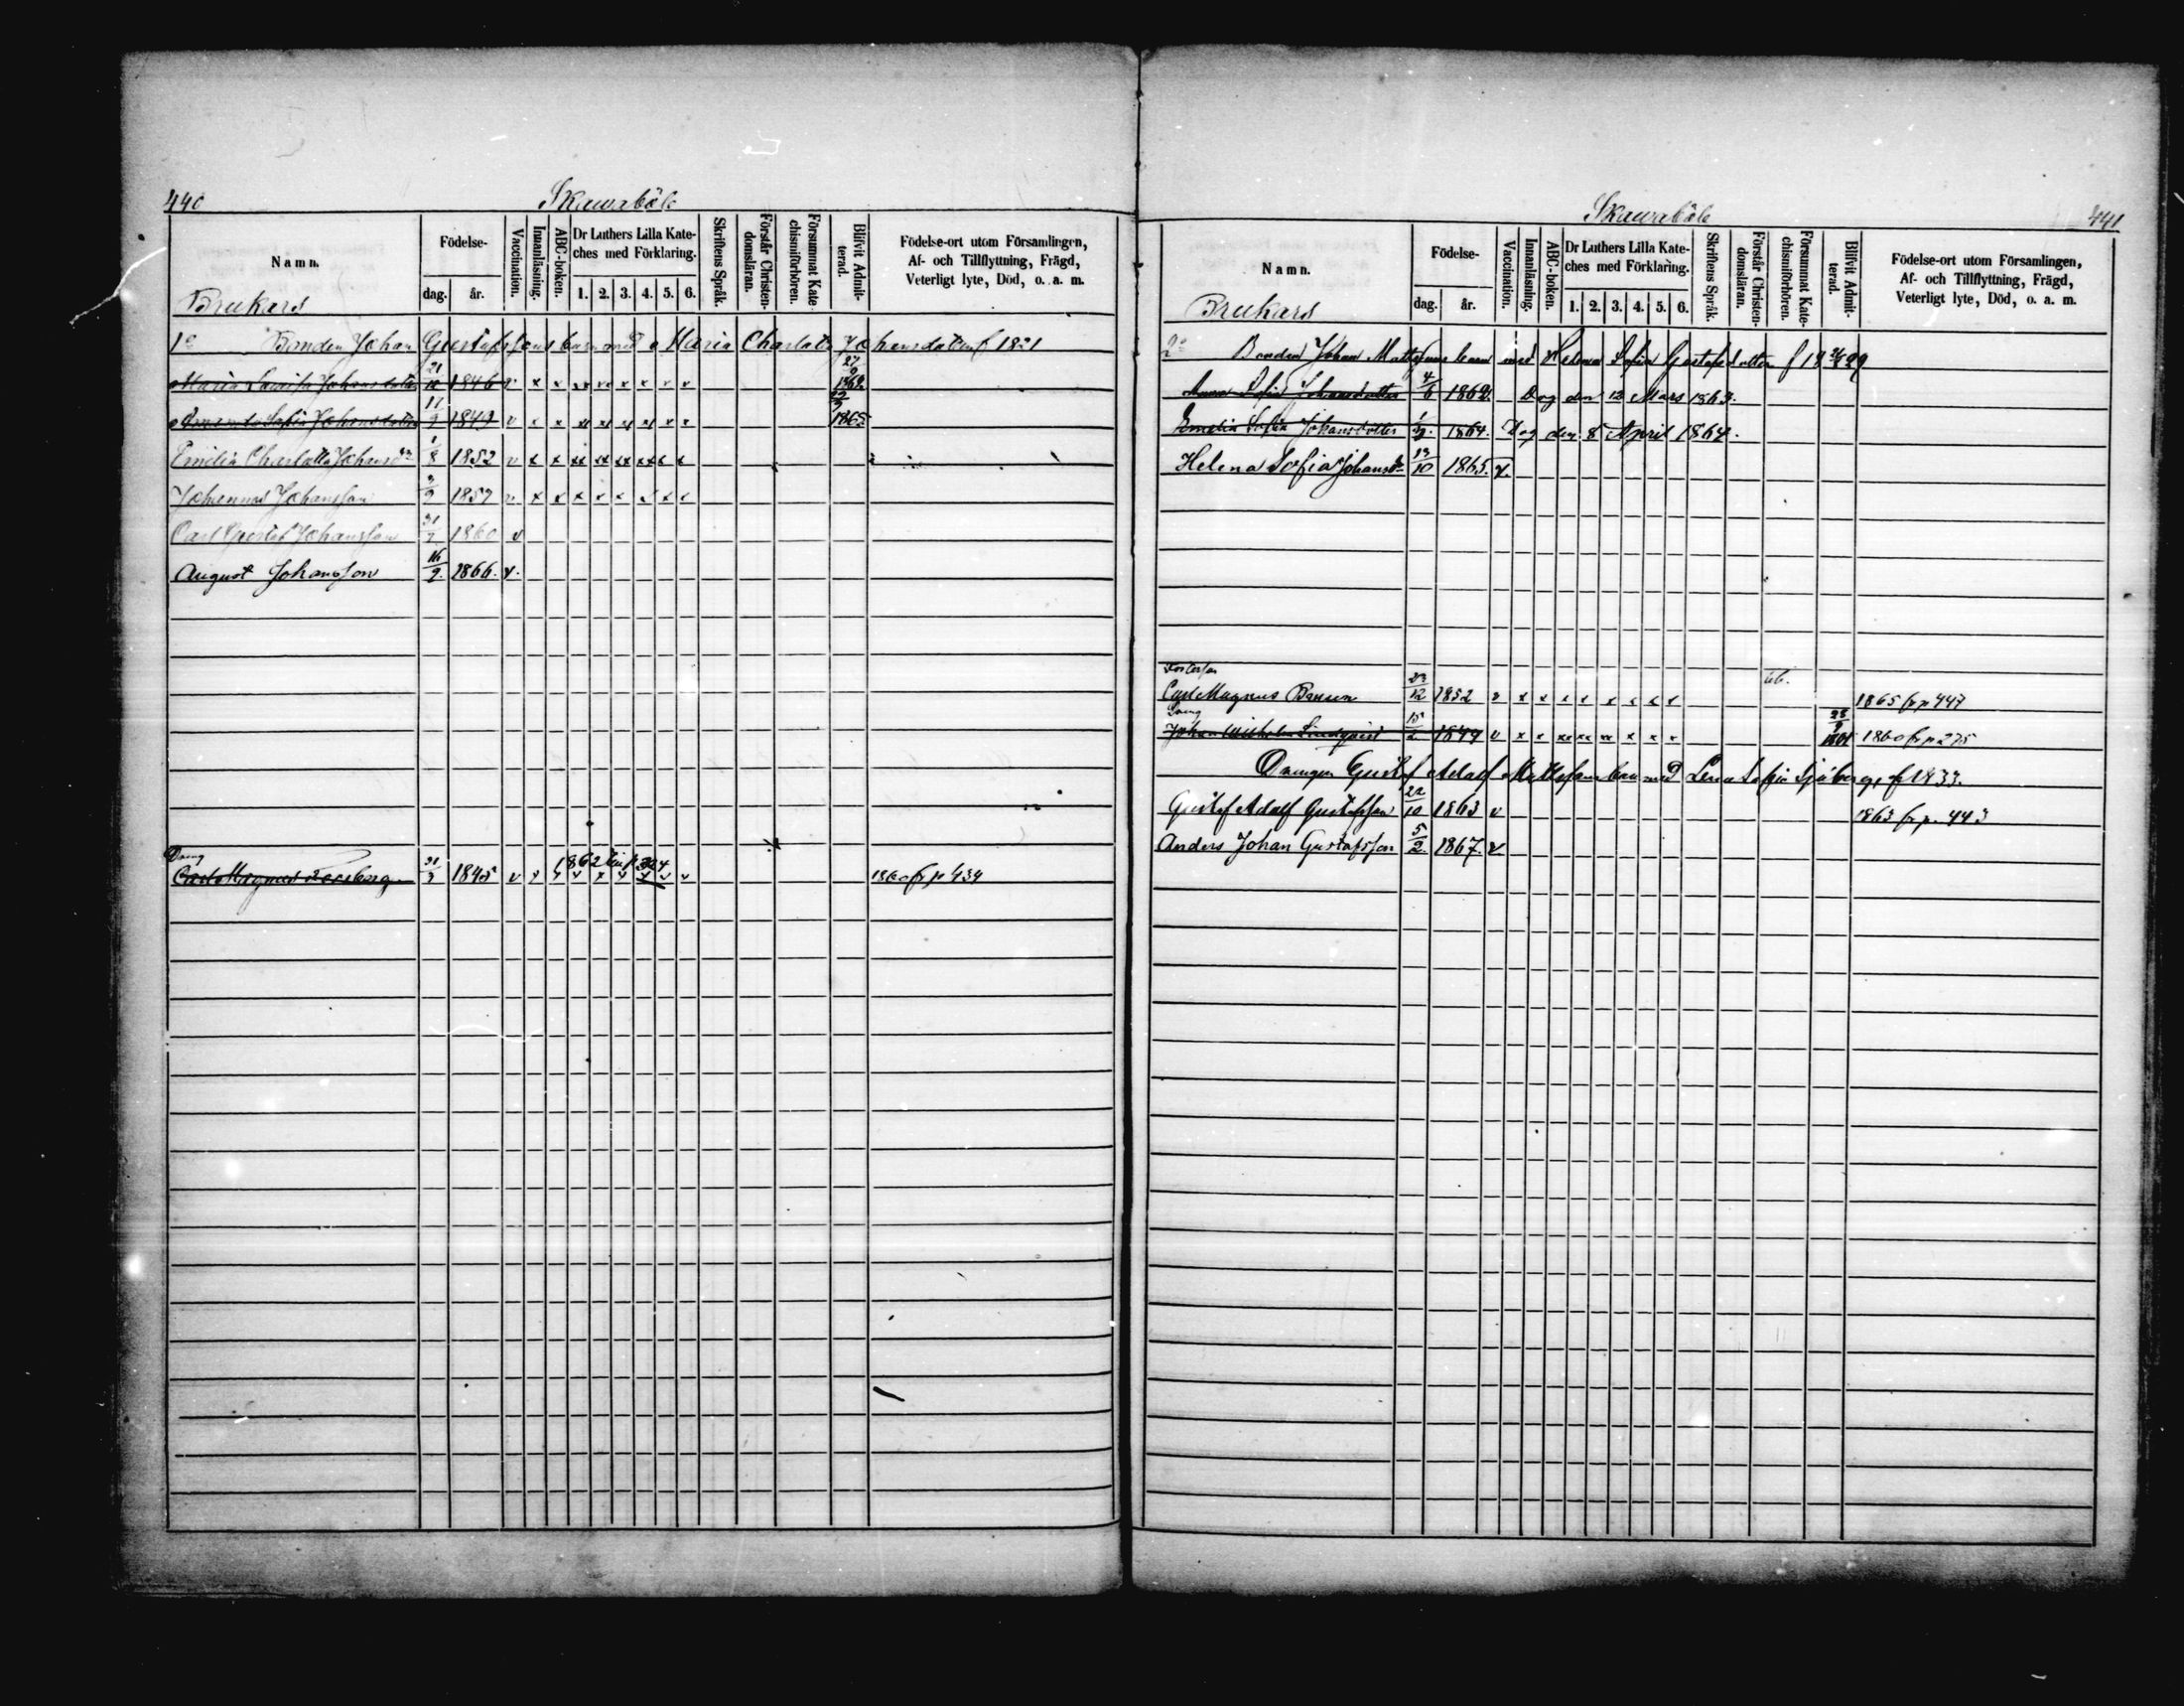 440
Skawaböle
Namn.
Födelse-
dag.
år.
Vaccination.
Innanläsning.
ABC-boken.
Dr Luthers Lilla Kate-
ches med Förklaring.
1. 2. 3. 4. 5. 6.
Skriftens Språk.
Förstår Christen-
domsläran.
Försummat Kate-
chismiförhören.
Blifvit Admit-
terad.
Födelse-ort utom Församlingen,
Af- och Tillflyttning, Frägd,
Veterligt lyte, Död, o. a. m.
Brukars
1o Bonden Johan Gustafssons barn med Maria Charlotta Johansdotter f 1821
Maria Lovisa Johansdotter 21/10 1846 v x x xx xx x x x x 1862
Amanda Sofia Johansdotter 11/9 1849 v x x xx xx xx xx x x 1865
Emelia Charlotta Johansdr 1/8 1852 v x x xx xx xx xx x x
Johannes Johansson 1857 v x x x x x x x x
Carl Gustaf Johansson 31/7 1860 v
August Johansson 16/9 1866. v.
Dreng
Carl Magnus 31/3 1845 v 1862 1860 fr p 434
441
Skawaböle
Namn.
Födelse-
dag.
år.
Vaccination.
Innanläsning.
ABC-boken.
Dr Luthers Lilla Kate-
ches med Förklaring.
1. 2. 3. 4. 5. 6.
Skriftens Språk.
Förstår Christen-
domsläran.
Försummat Kate-
chismiförhören.
Blifvit Admit-
terad.
Födelse-ort utom Församlingen,
Af- och Tillflyttning, Frägd,
Veterligt lyte, Död, o. a. m.
Brukars
2o Bonden Johan Mattssons barn med Helena Sofia Gustafsdotter f 18 29
Anna Sofia Johansdotter 4/6 1862. Dog den 13 Mars 1863.
Emelia Sofia Johansdotter 1864. Dog den 8 April 1864.
Helena Sofia Johansdr 13/10 1865. v.
Fosterson
Carl Magnus 23/12 1852 v x x x x x x x x 1865 fr p 447
Dreng
Johan Wilhelm Lindqvist 15/2 1844 v x x xx xx xx x x x 1860 fr p 275
Drengen Gustaf Adolf Mattssons barn med Lena Sofia Sjöberg, f 1833.
Gustaf Adolf Gustafsson 22/10 1863 v 1863 fr p. 443
Anders Johan Gustafsson 5/2. 1867. v